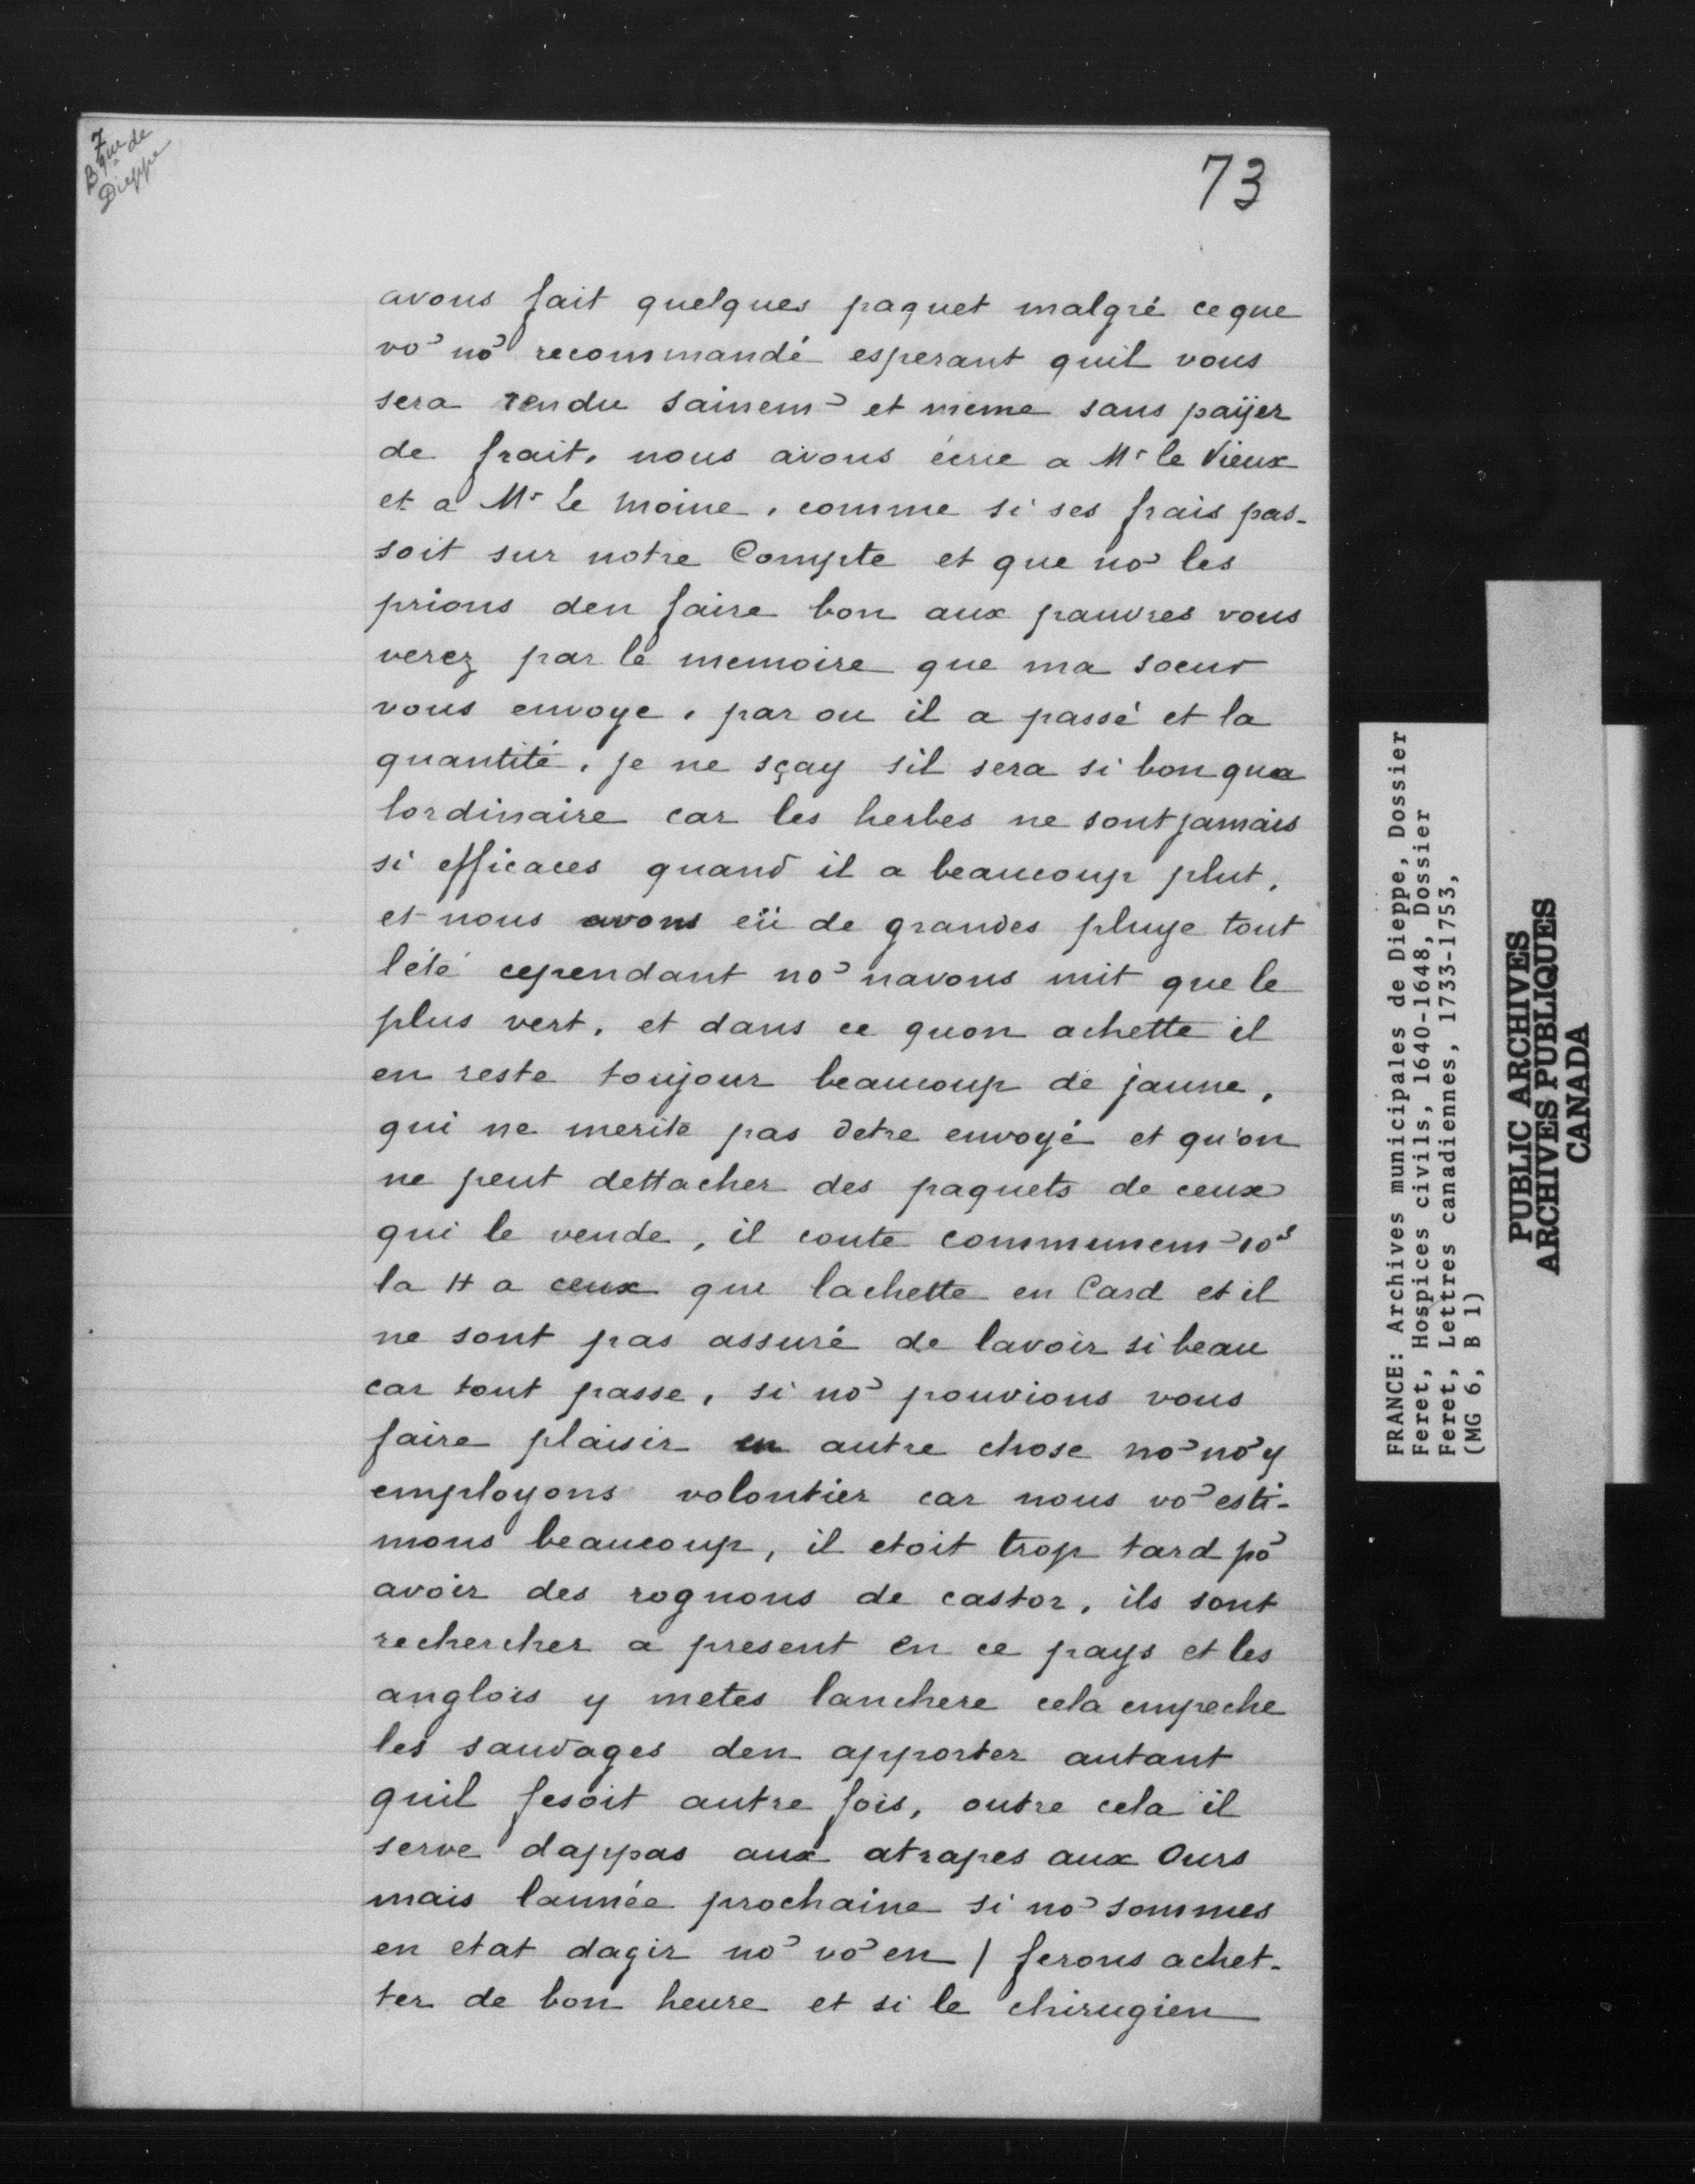 7
Bque de
Dieppe
73
avons fait quelques paquet malgré ce que
vo⁹ no⁹ recommandé esperant quil vous
sera rendu sainem⁹ et meme sans paÿer
de frait. nous avons écrie a Mr le Vieux
et a Mr Le moine, comme si ses frais pas-
soit sur notre Compte et que no⁹ les
prions den faire bon aux pauvres vous
verez par le memoire que ma soeur
vous envoye, par ou il a passé et la
quantité, je ne sçay sil sera si bon qua
lordinaire car les herbes ne sont jamais
si efficaces quand il a beaucoup plut,
et nous avons eü de grandes pluye tout
lété cependant no⁹ navons mit que le
plus vert, et dans ce quon achette il
en reste toujour beaucoup de jaune,
qui ne merite pas detre envoyé et qu'on
ne peut dettacher des paquets de ceux
qui le vende, il coute communem⁹ 10s
la # a ceux qui lachette en Card et il
ne sont pas assuré de lavoir si beau
car tout passe, si no⁹ pouvions vous
faire plaisir en autre chose no⁹ no⁹ y
employons volontier car nous vo⁹ esti-
mons beaucoup, il etoit trop tard po⁹
avoir des rognons de castor, ils sont
rechercher a present en ce pays et les
anglois y metes lanchere cela empeche
les sauvages den apporter autant
quil fesoit autre fois, outre cela il
serve dappas aux atrapes aux Ours
mais lannée prochaine si no⁹ sommes
en etat dagir no⁹ vo⁹ en / ferons achet-
ter de bon heure et si le chirugien
FRANCE: Archives municipales de Dieppe, Dossier
Feret, Hospices civils, 1640-1648, Dossier
Feret, Lettres canadiennes, 1733-1753,
(MG 6, B 1)
PUBLIC ARCHIVES
ARCHIVES PUBLIQUES
CANADA